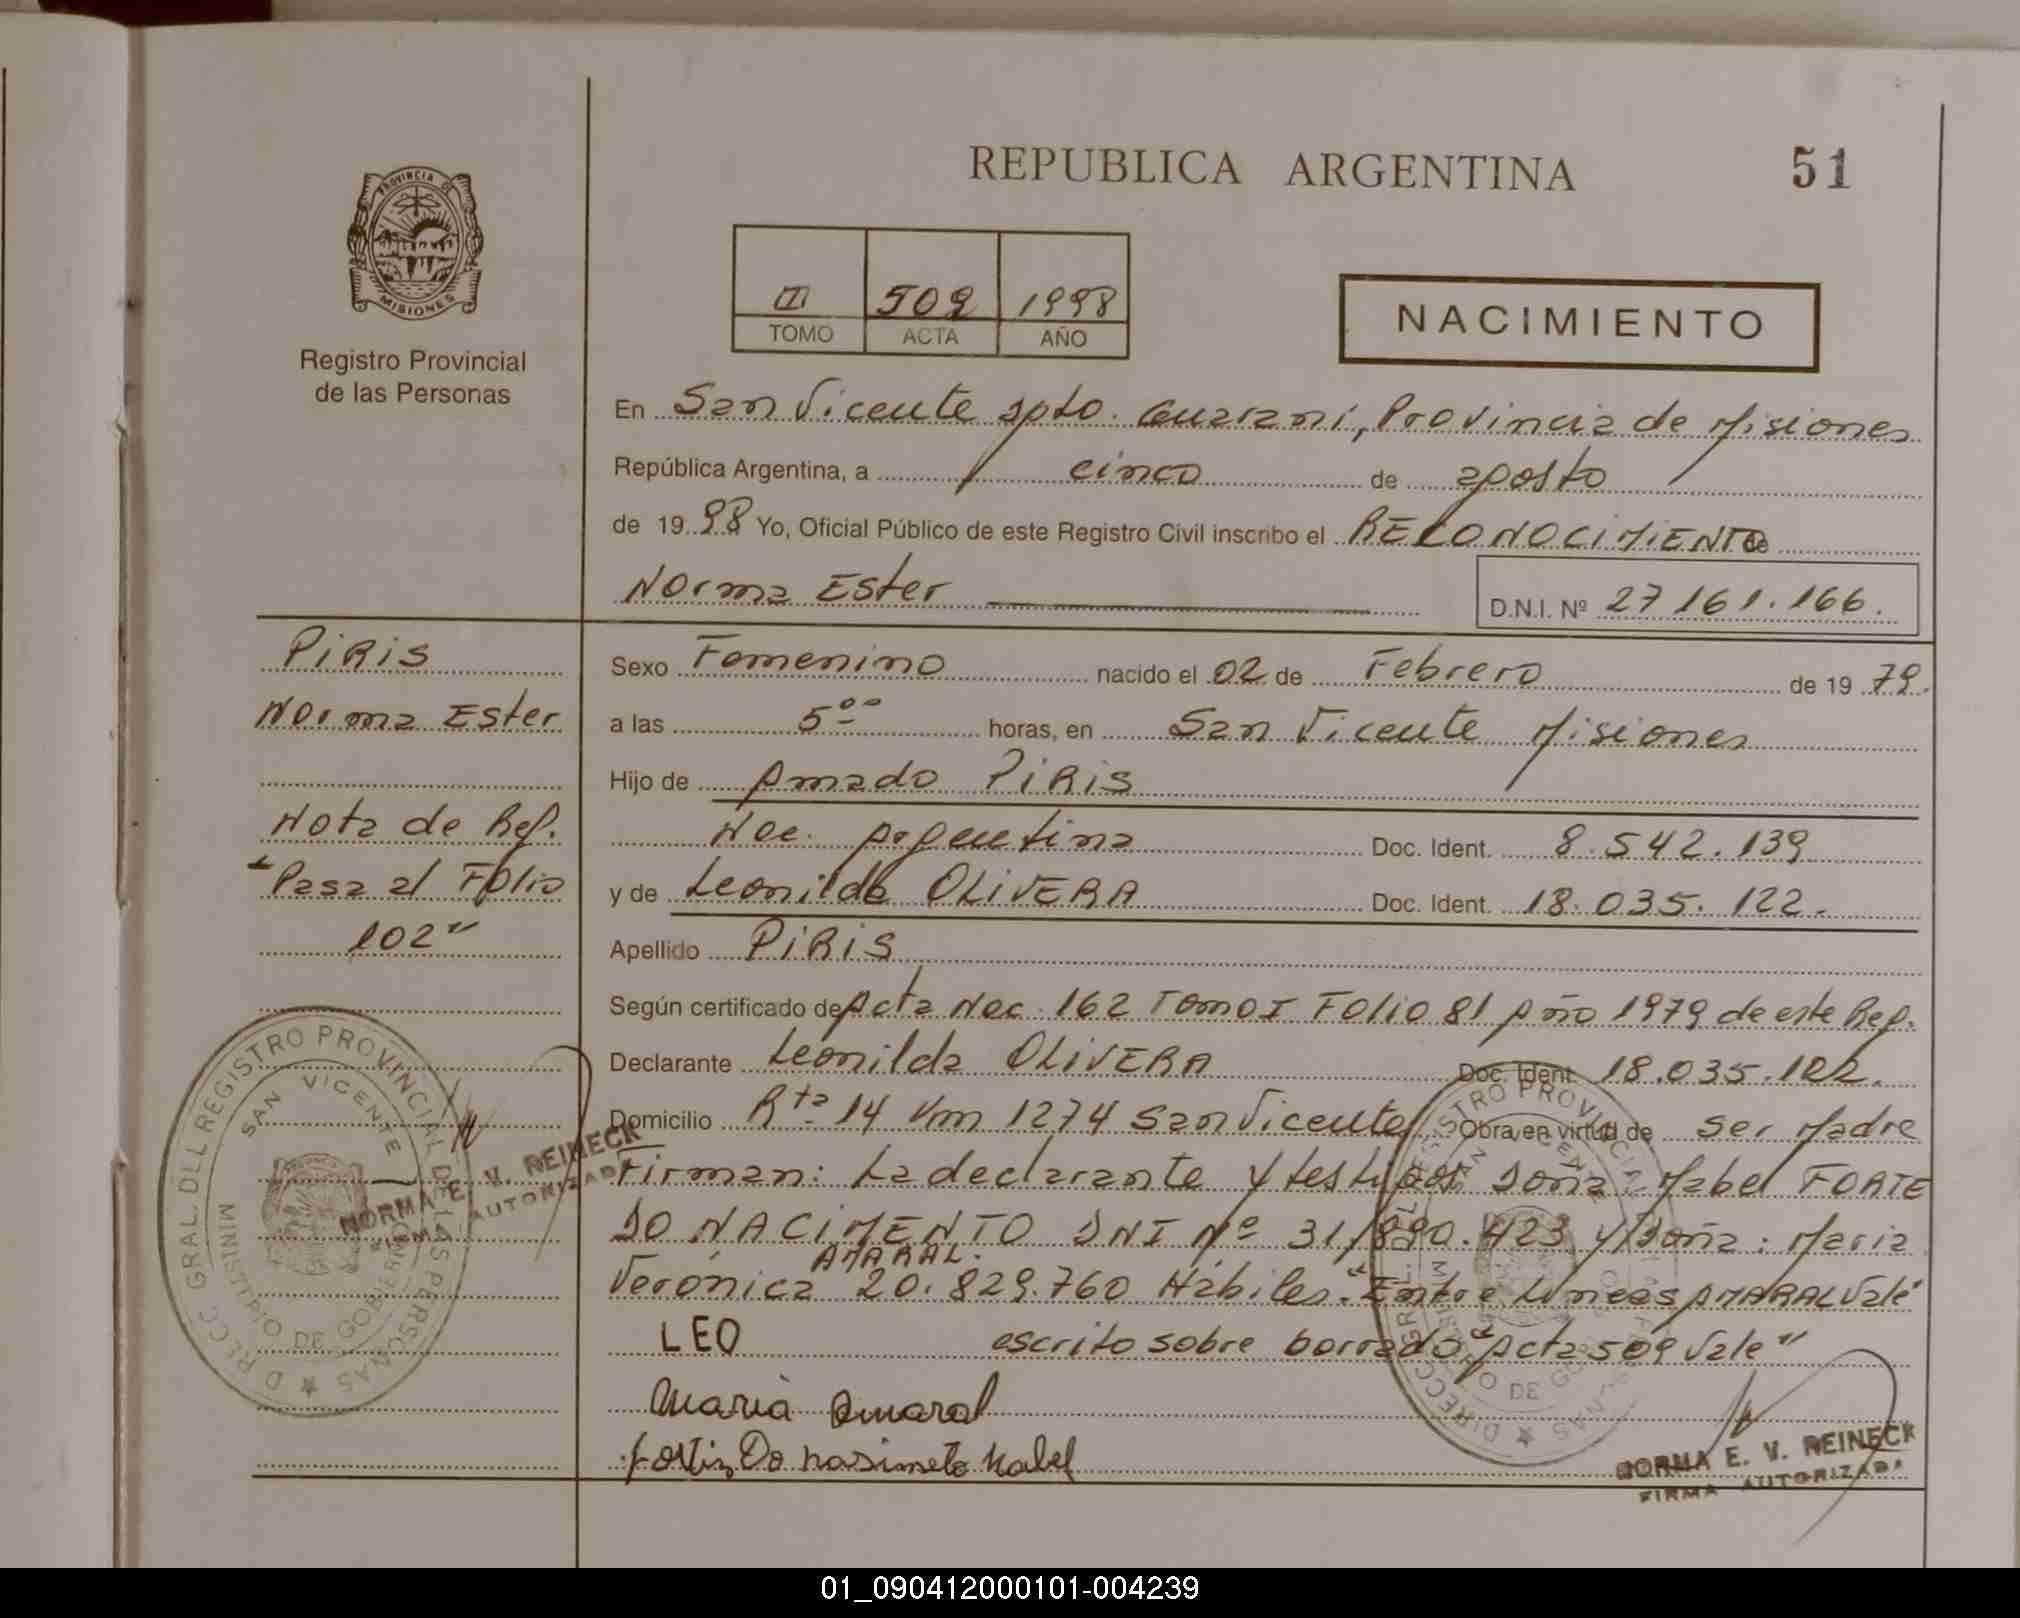 REPUBLICA ARGENTINA
51
PROVINCIA DE
MISIONES
Registro Provincial
de las Personas
II 509 1998
TOMO ACTA AÑO
NACIMIENTO
En San Vicente Dpto. Guarani, Provincia de Misiones
República Argentina, a cinco de agosto
de 19 98 Yo, Oficial Público de este Registro Civil inscribo el RECONOCIMIENTO de
Norma Ester D.N.I. Nº 27 161.166.
PIRIS
Norma Ester
Nota de Ref.
"Pasa al Folio
102"
Sexo Femenino nacido el 02 de Febrero de 19 79.
a las 5⁰⁰ horas, en San Vicente Misiones
Hijo de Amado PIRIS
Nac. Argentina Doc. Ident. 8.542.139
y de Leonilda OLIVERA Doc. Ident. 18.035.122.
Apellido PIRIS
Según certificado de Acta Nac. 162 Tomo I Folio 81 Año 1979 de este Reg.
Declarante Leonilda OLIVERA Doc. Ident. 18.035.122.
Domicilio Rta 14 Km 1274 San Vicente Obra en virtud de ser Madre
Firman: La declarante y testigos Doña: Mabel FORTE
DO NACIMENTO DNI Nº 31.890.423 y Doña: Maria
AMARAL.
Verónica 20.829.760 Hábiles. "Entre Lineas AMARAL Vale"
LEO escrito sobre borrado "Acta 509 Vale"
Maria Amaral
Do nasimeto Mabel
NORMA E. V. REINECK
FIRMA AUTORIZADA
NORMA E. V. REINECK
FIRMA AUTORIZADA
DIRECC GRAL. DEL REGISTRO PROVINCIAL DE LAS PERSONAS
SAN VICENTE
MINISTERIO DE GOBIERNO
01_090412000101-004239